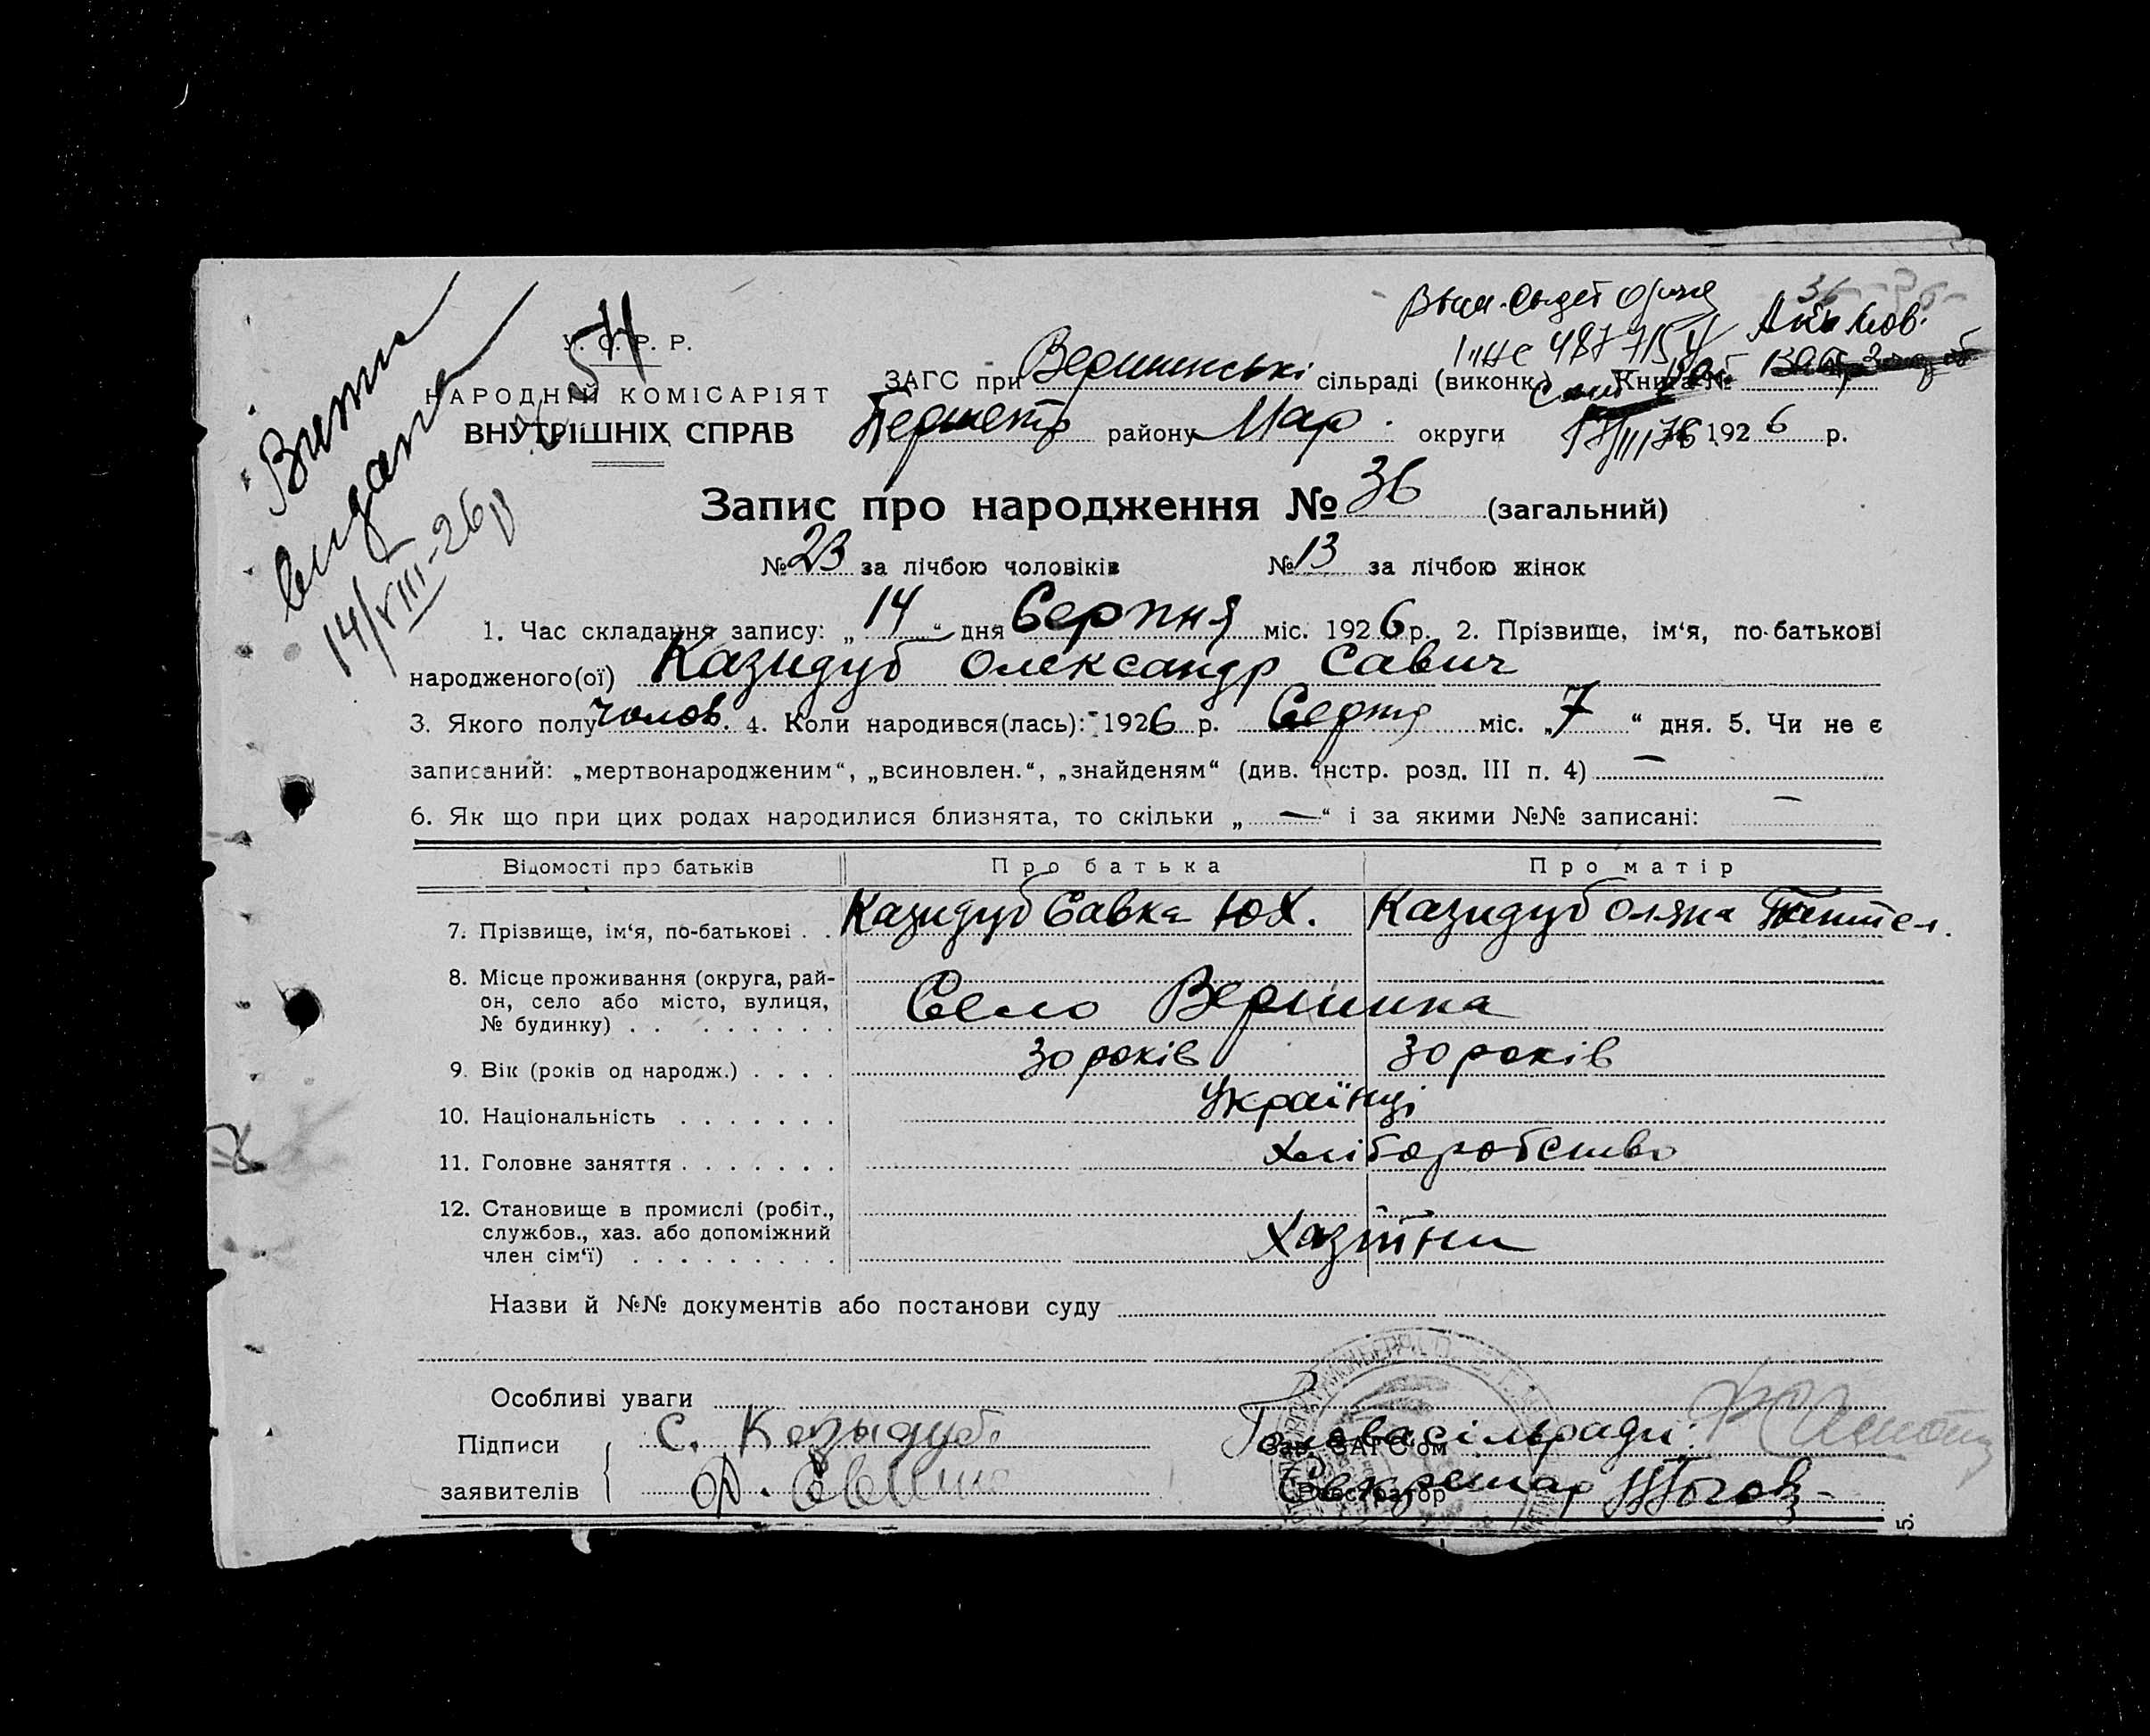 У. С. Р. Р.
54
НАРОДНІЙ КОМІСАРІЯТ
ВНУТРІШНІХ СПРАВ
Витяг
видана
14/VIII-26р
36
487715
ЗАГС при Вершинські сільраді (виконк.) Книга №
району Мар. округи 1926 р.
Запис про народження № 36 (загальний)
№ 23 за лічбою чоловіків № 13 за лічбою жінок
1. Час складання запису: „14“ дня Серпня міс. 1926 р. 2. Прізвище, ім‘я, по-батькові
народженого(ої) Казидуб Олександр Савич
3. Якого полу чолов. 4. Коли народився(лась): 1926 р. Серпня міс. „7“ дня. 5. Чи не є
записаний: „мертвонародженим“, „всиновлен.“, „знайденям“ (див. інстр. розд. III п. 4) —
6. Як що при цих родах народилися близнята, то скільки „—“ і за якими №№ записані: —
Відомості про батьків Про батька Про матір
7. Прізвище, ім‘я, по-батькові . . Казидуб Савка Юх. Казидуб Оляна
8. Місце проживання (округа, рай-
он, село або місто, вулиця,
№ будинку) . . . . . . . . . Село Вершина
9. Вік (років од народж.) . . . . 30 років 30 років
10. Національність . . . . . . . Українці
11. Головне заняття . . . . . . . Хліборобство
12. Становище в промислі (робіт.,
службов., хаз. або допоміжний
член сім‘ї) . . . . . . . . . Хазяїни
Назви й №№ документів або постанови суду
Особливі уваги
Підписи С. Козыдуб Зав. ЗАГС‘ом Голова сільради
заявителів Реєстратор Секретар
5.